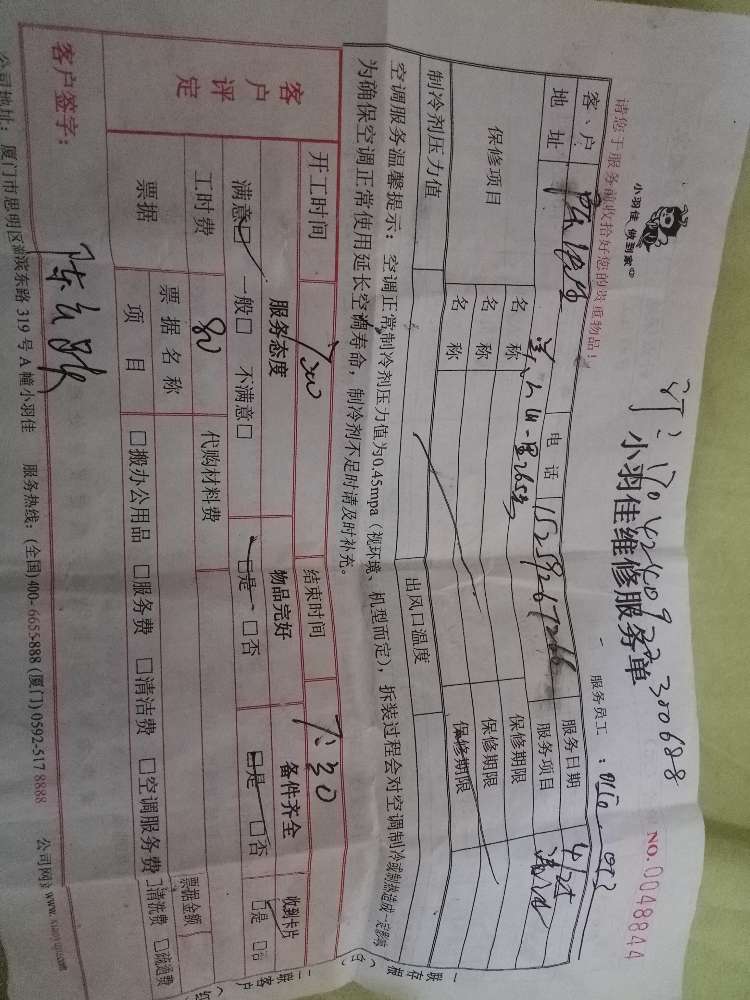 请您于服务前收拾好您的贵重物品!
小羽佳 做到家
17042409223300688
小羽佳维修服务单
NO.0048844
服务员工:
客户 电话 15259267266 服务日期 4/25
地址 服务项目
保修项目 名称 保修期限
名称 保修期限
名称 保修期限
制冷剂压力值 出风口温度
空调服务温馨提示:空调正常制冷剂压力值为0.45mpa(视环境、机型而定),拆装过程会对空调制冷或制热造成一定影响
为确保空调正常使用延长空调寿命,制冷剂不足时请及时补充。
开工时间 7:00 结束时间 7:30
客户评定 服务态度 物品完好 备件齐全 收到卡片
满意□ 一般□ 不满意□ □是 □否 □是 □否 □是 □否
工时费 80 代购材料费
票据 票据名称 票据金额
项目 □搬办公用品 □服务费 □清洁费 □空调服务费 □清洗费 □疏通费
客户签字:
公司地址:厦门市思明区湖滨东路319号A幢小羽佳 服务热线:(全国)400-6655-888(厦门)0592-517 8888 公司网: